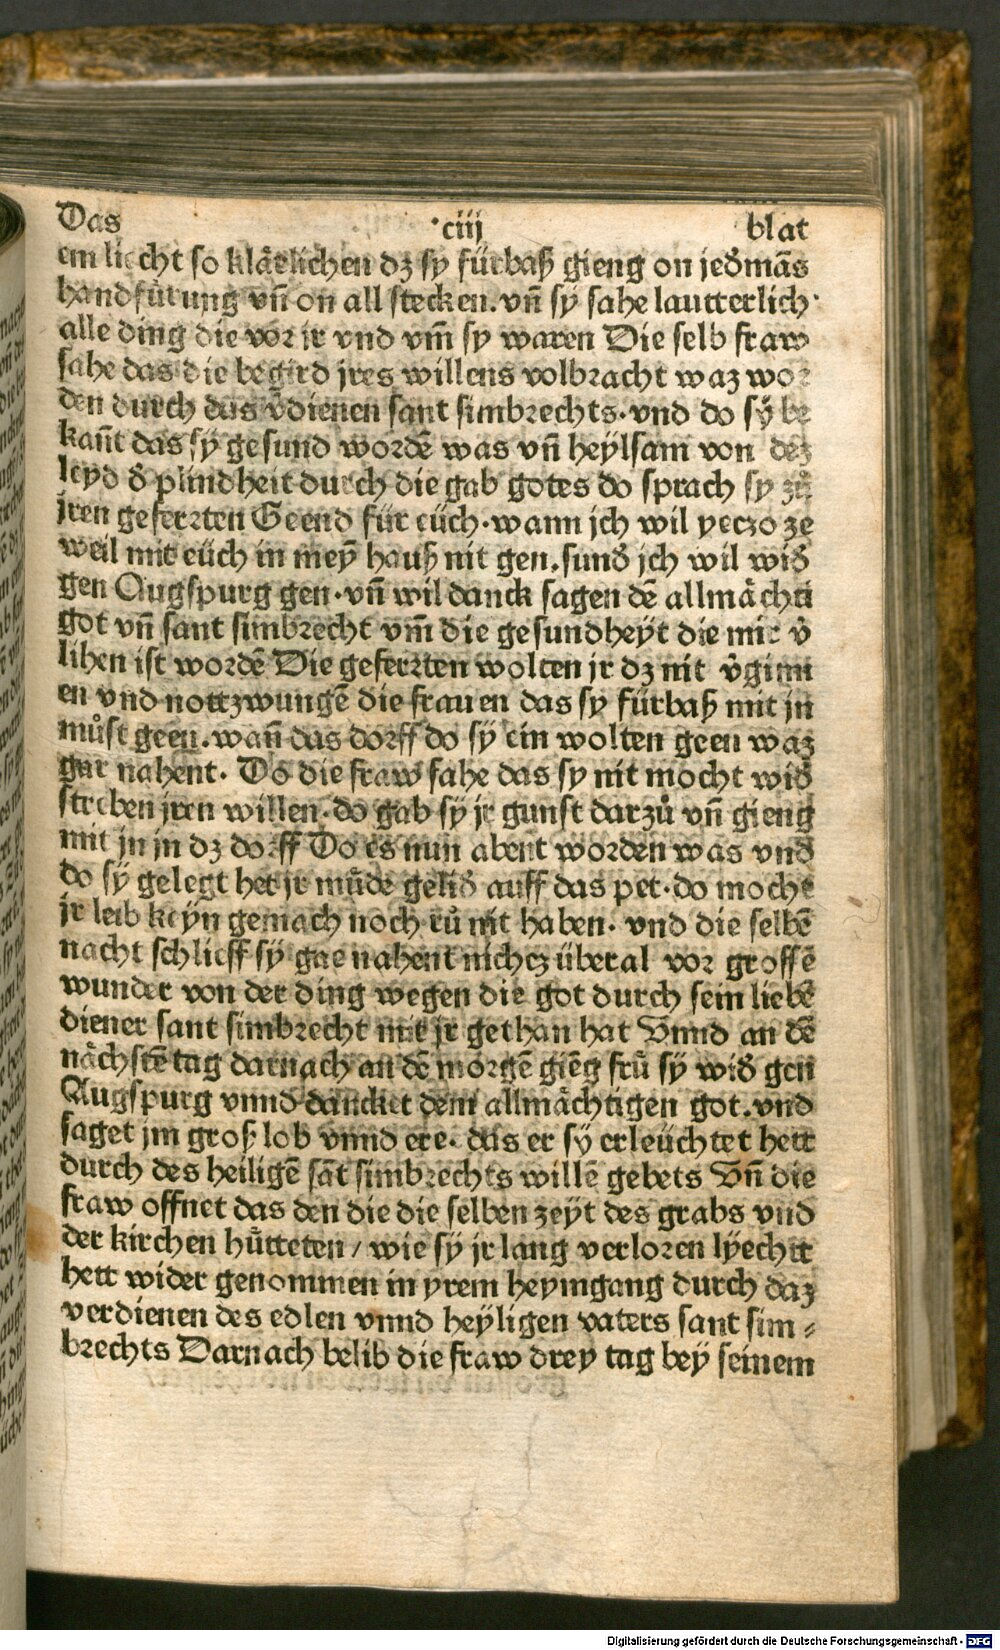 Das ·ciij blat
ein liecht so klärlichen dz sy fürbaß gieng on jedmãs
handfürung vñ on all stecken. vñ sy sahe lautterlich·
alle ding die vor ir vnd vm̃ sy waren Die selb fraw
sahe das die begird jres willens volbracht waz wor
den durch das v̉dienen sant simbrechts· vnd do sÿ be
kañt das sy gesund wordẽ was vñ heÿlsam von dez
leyd d̉ plindheit durch die gab gotes do sprach sy zů
jren geferrten Geend für eüch· wann jch wil yeczo ze
weil mit eüch in meỹ hauß nit gen. sund̉ jch wil wid̉
gen Augspurg gen· vñ wil danck sagen dẽ allmächti
got vñ sant simbrecht vm̃ die gesundheÿt die mir v̉
lihen ist wordẽ Die geferrten wolten jr dz nit v̉ginn
en vnd nottzwungẽ die frauen das sy fürbaß mit jn
můst geen. wañ das dorff do sÿ ein wolten geen waz
gar nahent. Do die fraw sahe das sy nit mocht wid̉
streben jren willen· do gab sÿ jr gunst darzů vñ gieng
mit jn in dz dorff Do es nun abent worden was vnd
do sÿ gelegt het jr müde gelid̉ auff das pet· do mocht
jr leib keyn gemach noch rů nit haben· vnd die selbẽ
nacht schlieff sÿ gar nahent nichcz überal vor grossẽ
wunder von der ding wegen die got durch sein liebẽ
diener sant simbrecht mit jr gethan hat Vnnd an dẽ
nächstẽ tag darnach an dẽ morgẽ giẽg frů sÿ wid̉ gen
Augspurg vnnd dancket dem allmächtigen got. vnd
saget jm groß lob vnnd ere. das er sÿ erleüchtet hett
durch des heiligẽ sãt simbrechts willẽ gebets Vñ die
fraw offnet das den die die selben zeÿt des grabs vnd
der kirchen hütteten / wie sÿ jr lang verloren lÿechtt
hett wider genommen in yrem heymgang durch daz
verdienen des edlen vnnd heÿligen vaters sant sim⸗
brechts Darnach belib die fraw drey tag beÿ seinem
Digitalisierung gefördert durch die Deutsche Forschungsgemeinschaft - DFG